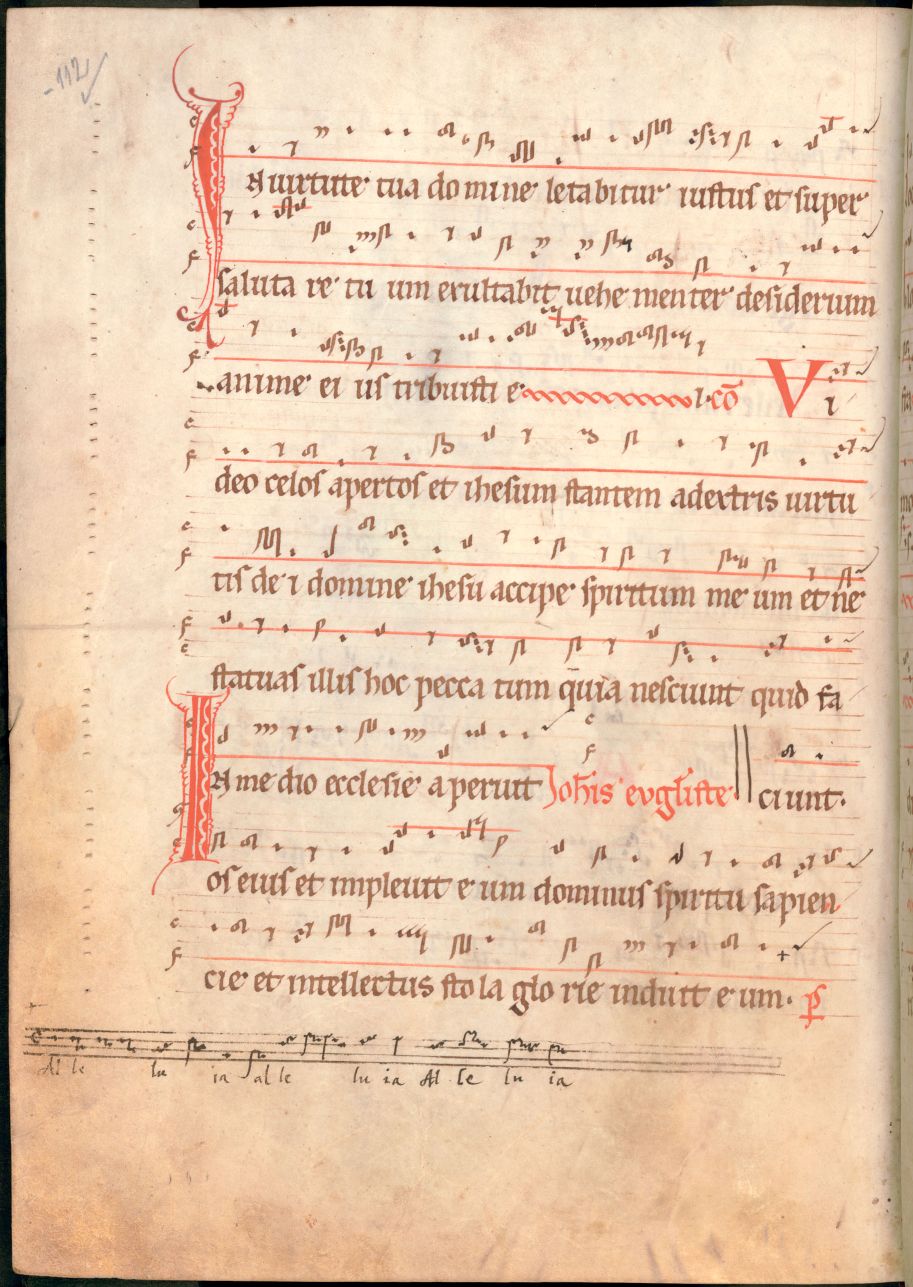 112
In uirtute tua domine letabitur iustus et super
saluta re tu um exultabit uehe menter desiderium
anime ei us tribuisti e l. cō Vi
deo celos apertos et ihesum stantem adextris uirtu
tis de i domine ihesu accipe spiritum me um et ne
statuas illis hoc pecca tum quia nesciunt quid fa
In me dio ecclesie aperuit Ioh̄is evgl̄iste ciunt.
os eius et impleuit e um dominus spiritu sapien
cie et intellectus sto la glo rie induit e um. p̄s
Al le lu ia al le lu ia Al le lu ia